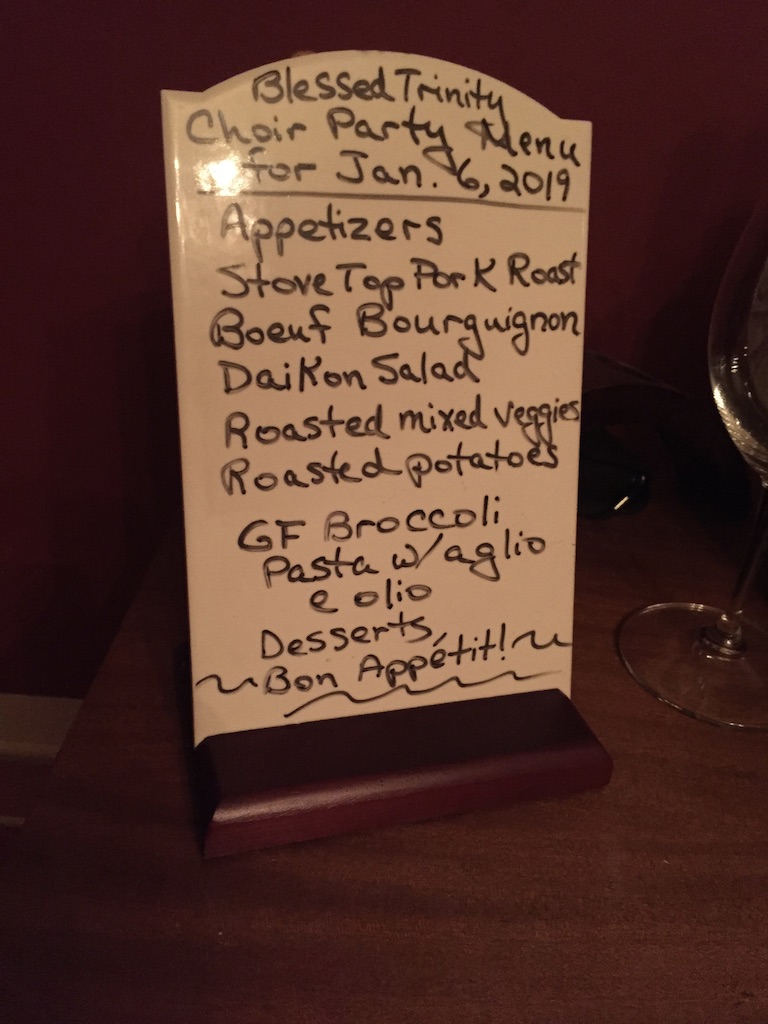 Blessed Trinity
Choir Party Menu
for Jan. 6, 2019
Appetizers
Stove Top Pork Roast
Boeuf Bourguignon
Daikon Salad
Roasted mixed veggies
Roasted potatoes
GF Broccoli
Pasta w/ aglio
e olio
Desserts,
~Bon Appétit!~